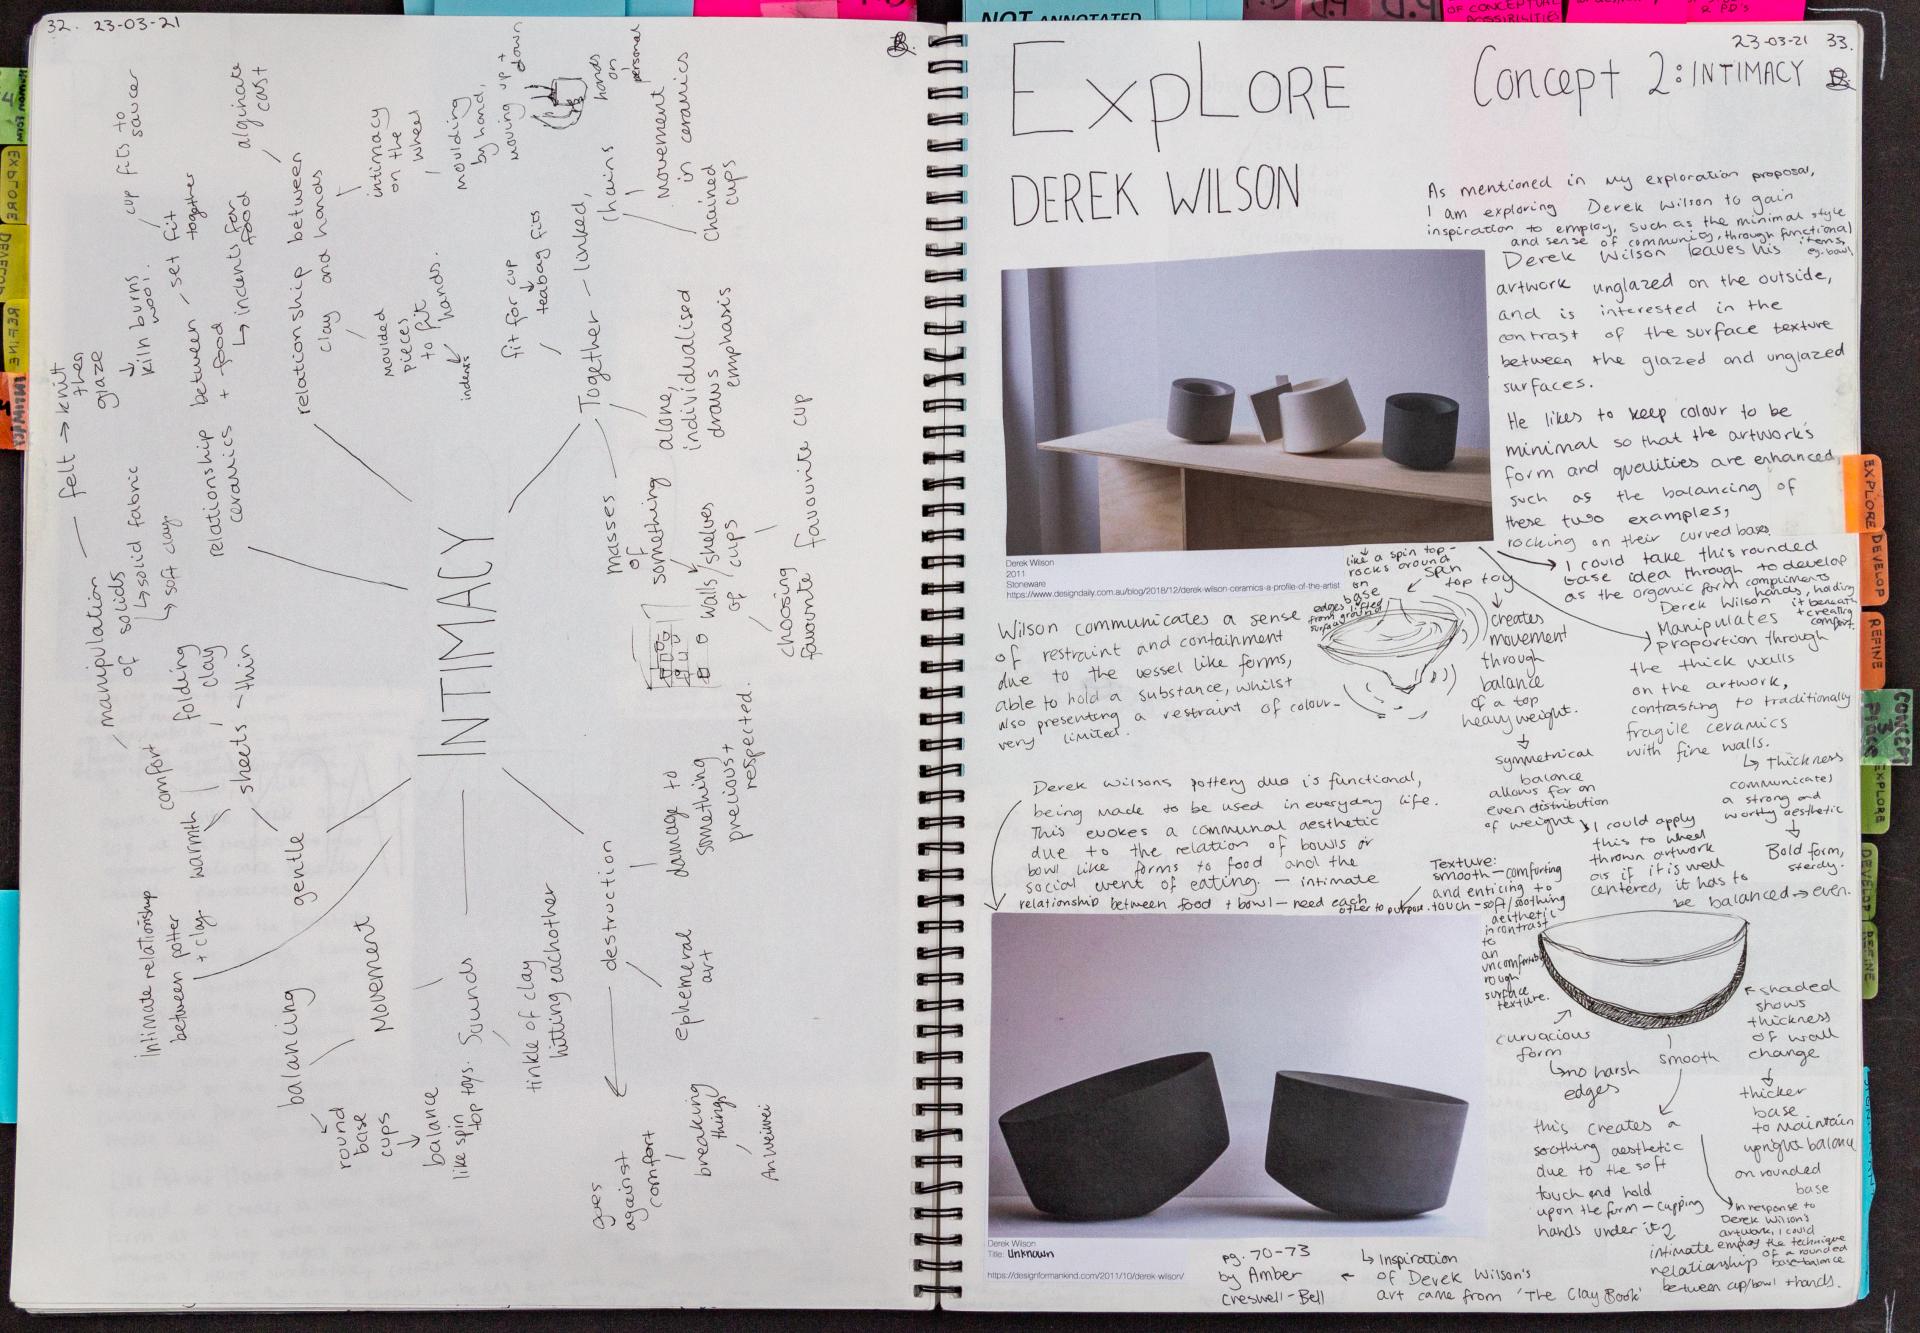 32. 23-03-21
INTIMACY
manipulation
of
solids
↳ solid fabric
↳ soft clay
felt → knitt
then
glaze
↓
kiln burns
wool.
relationship between
ceramics + food
↳ indents for
food
set fit
together
cup fits to
saucer
relationship between
clay and hands
alginate
cast
intimacy
on the
wheel
moulding
by hand,
moving up +
down
moulded
pieces
to fit
hands.
indents
Together — linked,
chains
hands
on
personal
movement
in ceramics
chained
cups
fit for cup
↓
teabag fits
alone,
individualised
draws
emphasis
masses
of
something
walls/shelves
of cups
choosing
favourite cup
favourite
damage to
something
precious +
respected.
destruction
ephemeral
art
goes
against
comfort
breaking
things
Ai weiwei
Sounds
tinkle of clay
hitting eachother
Movement
balancing
round
base
cups
balance
like spin
top toys.
gentle
warmth
comfort
sheets — thin
folding
clay
Intimate relationship
between potter
+ clay
NOT ANNOTATED
OF CONCEPTUAL
POSSIBILITIES
23-03-21 33.
EXPLORE
Concept 2: INTIMACY
DEREK WILSON
As mentioned in my exploration proposal,
I am exploring Derek Wilson to gain
inspiration to employ, such as the minimal style
and sense of community, through functional
items,
eg. bowl
Derek Wilson leaves his
artwork unglazed on the outside,
and is interested in the
contrast of the surface texture
between the glazed and unglazed
surfaces.
He likes to keep colour to be
minimal so that the artwork's
form and qualities are enhanced,
such as the balancing of
these two examples,
rocking on their curved base.
→ I could take this rounded
base idea through to develop
as the organic form compliments
hands, holding
it beneath
+ creating
comfort.
Derek Wilson
2011
Stoneware
https://www.designdaily.com.au/blog/2018/12/derek-wilson-ceramics-a-profile-of-the-artist
like a spin top-
rocks around
on
base
edges lifted
from ground
surface
spin
top toy
creates
movement
through
balance
of a top
heavy weight.
↓
symmetrical
balance
allows for an
even distribution
of weight
Wilson communicates a sense
of restraint and containment
due to the vessel like forms,
able to hold a substance, whilst
also presenting a restraint of colour—
very limited.
Derek Wilson
Manipulates
proportion through
the thick walls
on the artwork,
contrasting to traditionally
fragile ceramics
with fine walls.
↳ Thickness
communicates
a strong and
worthy aesthetic
↓
Bold form,
sterdy.
I could apply
this to wheel
thrown artwork
as if it is well
centered, it has to
be balanced → even.
Derek Wilsons pottery duo is functional,
being made to be used in everyday life.
This evokes a communal aesthetic
due to the relation of bowls or
bowl like forms to food and the
social event of eating. — intimate
relationship between food + bowl — need each
other to purpose.
Texture:
smooth — comforting
and enticing to
touch - soft/soothing
aesthetic
in contrast
to
an
uncomfortable
rough
surface
texture.
curvacious
form
↳ no harsh
edges
smooth
this creates a
soothing aesthetic
due to the soft
touch and hold
upon the form — cupping
hands under it
intimate
relationship
between cup/bowl + hands.
shaded
shows
thickness
of wall
change
↓
thicker
base
to maintain
upright balance
on rounded
base
In response to
Derek Wilson's
artwork, I could
employ the technique
of a rounded
base-balance
Derek Wilson
Title: Unknown
https://designformankind.com/2011/10/derek-wilson/
↳ Inspiration
of Derek Wilson's
art came from 'The Clay Book'
pg. 70-73
by Amber
Creswell-Bell
EXPLORE
DEVELOP
REFINE
EXPLORE
DEVELOP
REFINE
CONCEPT
3
PLACE
EXPLORE
DEVELOP
REFINE